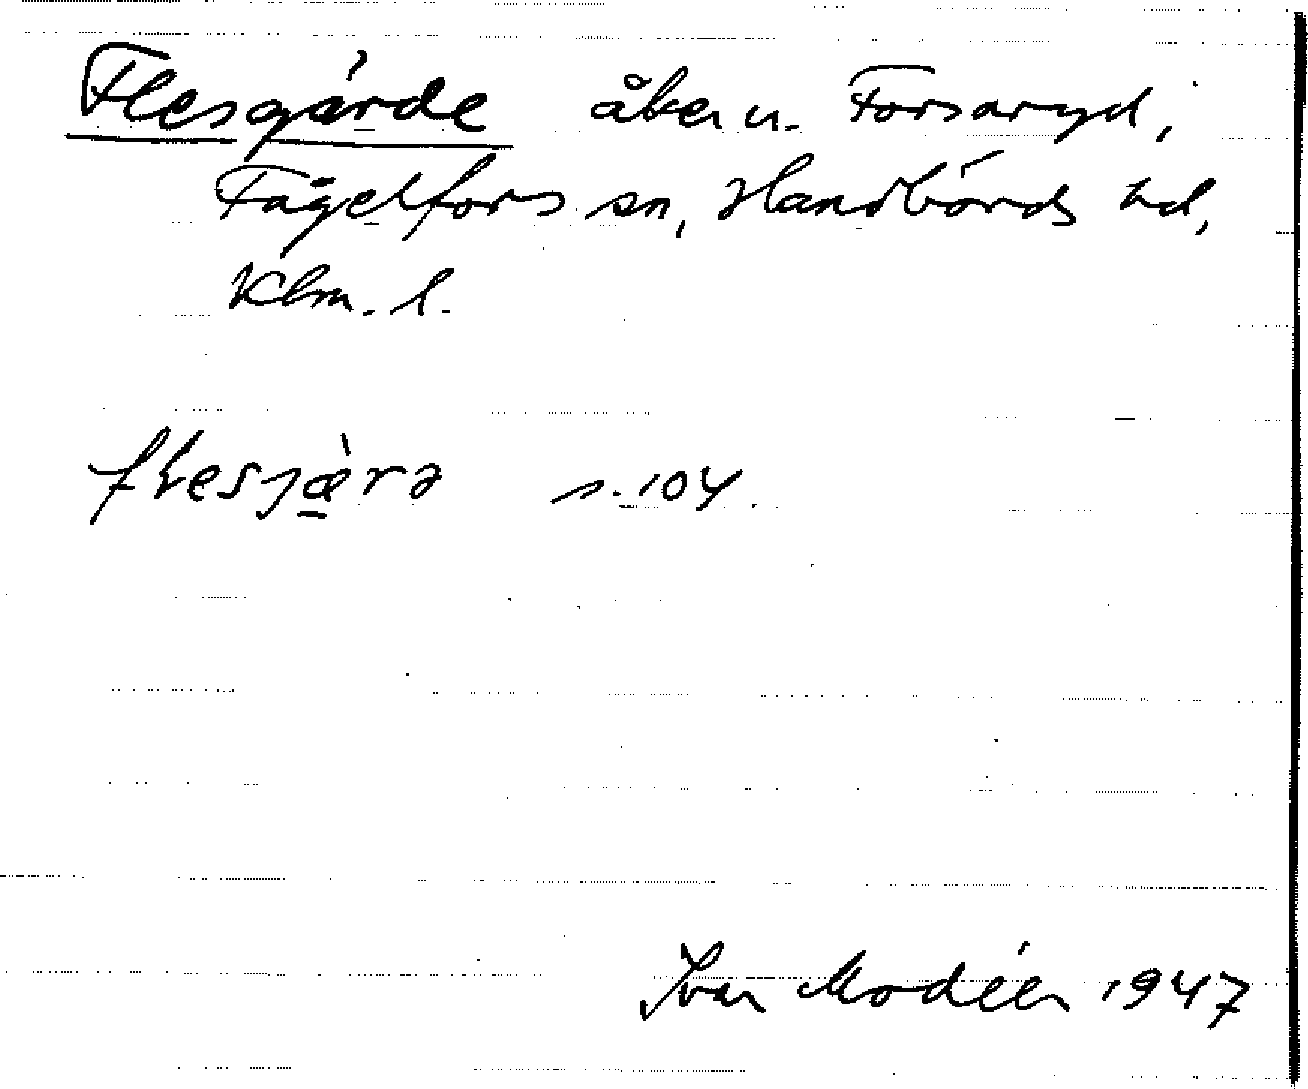 Flesgärde åker u. Forsaryd,
Fågelfors sn, Handbörds hd,
Klm. l.
flesjæ̀rə s. 104.
Ivar Modéer 1947